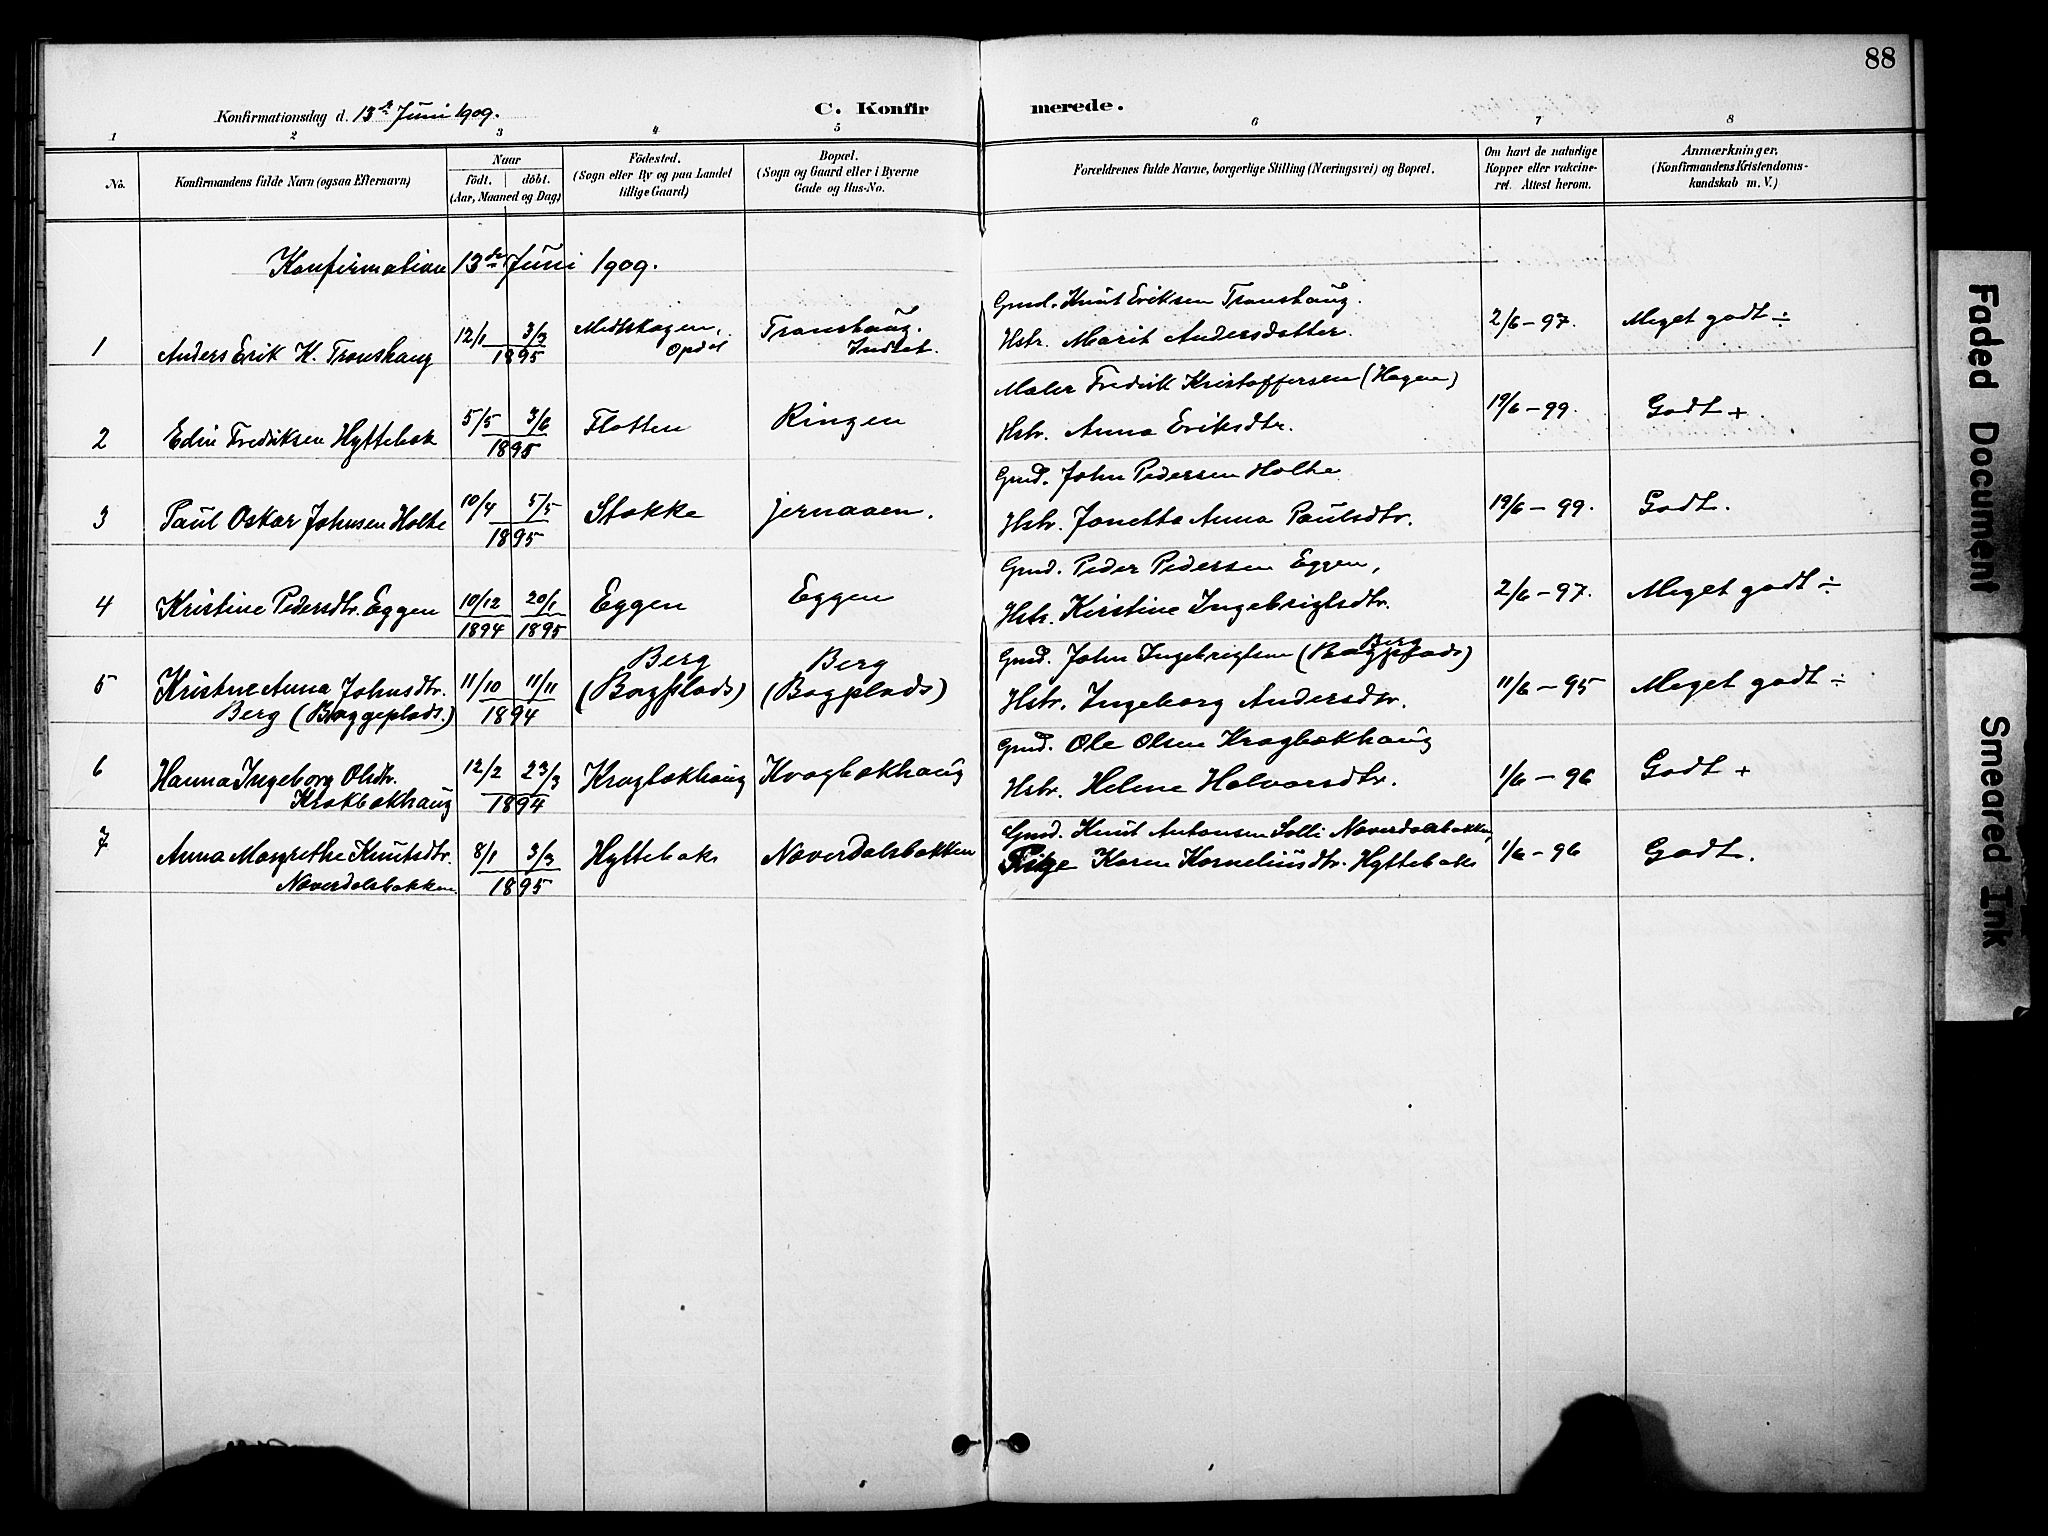 88
Konfirmationsdag d. 13de Juni 1909.
C. Konfirmerede.
1 2 3 4 5 6 7 8
No.
Konfirmandens fulde Navn (ogsaa Efternavn)
Naar
födt. döbt.
(Aar, Maaned og Dag)
Födested.
(Sogn eller By og paa Landet
tillige Gaard)
Bopæl.
(Sogn og Gaard eller i Byerne
Gade og Hus-No.
Forældrenes fulde Navne, borgerlige Stilling (Næringsvei) og Bopæl.
Om havt de naturlige
Kopper eller vakcine-
ret. Attest herom.
Anmærkninger,
(Konfirmandens Kristendoms-
kundskab m. V.)
Konfirmation 13de Juni 1909.
1 Anders Erik K. Tronshaug 12/1 3/3 1895 Medskogen, Opdal Tronshaug. Indset.
Gmd. Knut Eriksen Tronshaug.
Hstr. Marit Andersdatter. 2/6 - 97. Meget godt ÷
2 Edin Fredriksen Hyttebak 5/5 3/6 1895 Flotten Ringen
Maler Fredrik Kristoffersen (Hagen)
Hstr. Anna Eriksdtr. 19/6 - 99. Godt +
3 Paul Oskar Johnsen Holte 10/4 5/5 1895 Stokke jernaaen.
Gmd. John Pedersen Holte
Hstr. Janetta Anna Paulsdtr. 19/6 - 99. Godt.
4 Kristine Pedersdtr. Eggen 10/12 1894 20/1 1895 Eggen Eggen
Gmd. Peder Pedersen Eggen,
Hstr. Kirstine Ingebrigtsdtr. 2/6 - 97. Meget godt ÷
5 Kristine Anna Johnsdtr. Berg (Baggeplads.) 11/10 11/11 1894 Berg (Bagplads) Berg (Bagplads)
Gmd. John Ingebrigtsen Berg (Bagplads)
Hstr. Ingeborg Andersdtr. 11/6 - 95 Meget godt ÷
6 Hanna Ingeborg Olsdtr. Krokbækhaug 12/2 23/3 1894 Kragbækhaug Kragbækhaug
Gmd. Ole Olsen Kragbækhaug
Hstr. Helene Halvorsdtr. 1/6 - 96 Godt +
7 Anna Margrethe Knutsdtr. Næverdalsbakken 8/1 3/3 1895 Hyttebak Næverdalsbakken
Gmd. Knut Antonsen Solli Næverdalsbakken,
Pige Karen Korneliusdtr. Hyttebak 1/6 - 96 Godt.
Faded Document
Smeared Ink